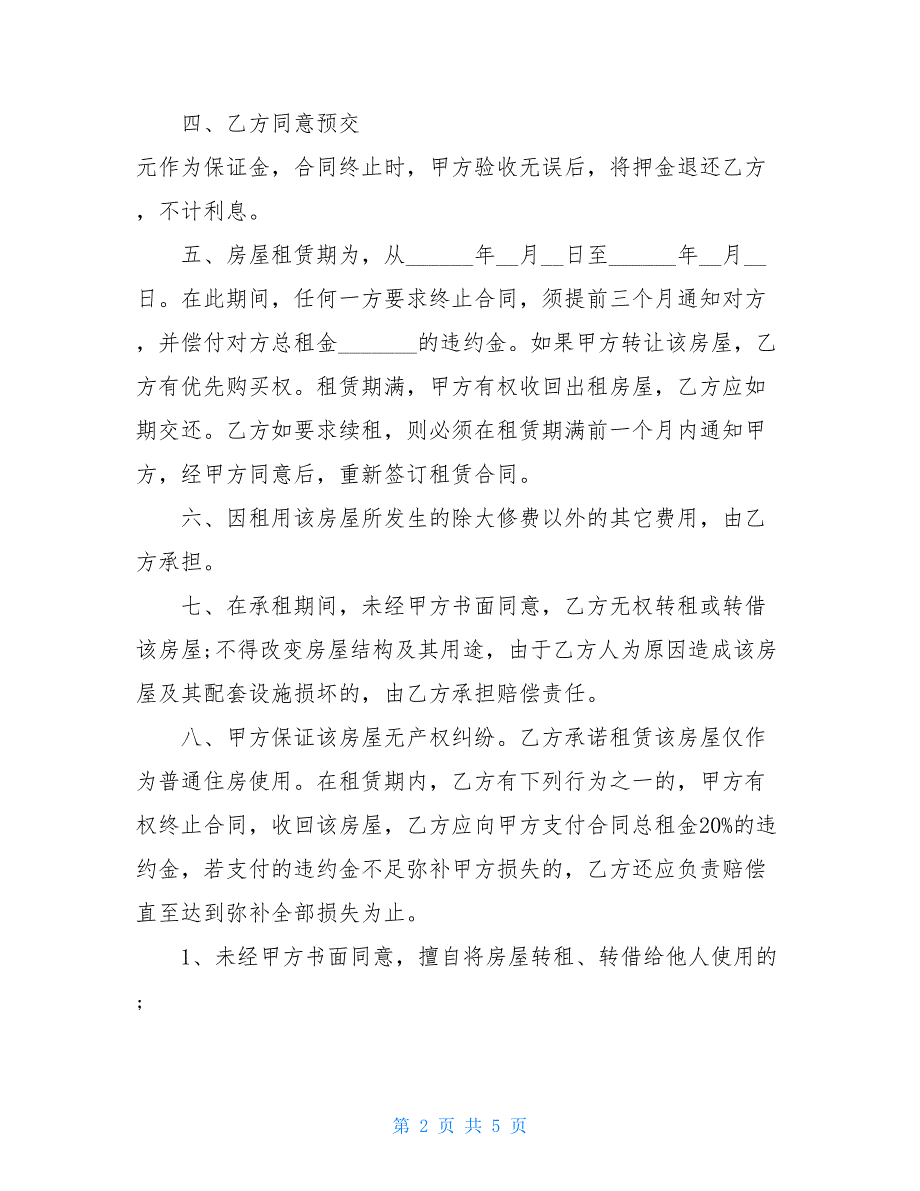 四、乙方同意预交
元作为保证金，合同终止时，甲方验收无误后，将押金退还乙方
，不计利息。
五、房屋租赁期为，从______年__月__日至______年__月__
日。在此期间，任何一方要求终止合同，须提前三个月通知对方
，并偿付对方总租金_______的违约金。如果甲方转让该房屋，乙
方有优先购买权。租赁期满，甲方有权收回出租房屋，乙方应如
期交还。乙方如要求续租，则必须在租赁期满前一个月内通知甲
方，经甲方同意后，重新签订租赁合同。
六、因租用该房屋所发生的除大修费以外的其它费用，由乙
方承担。
七、在承租期间，未经甲方书面同意，乙方无权转租或转借
该房屋;不得改变房屋结构及其用途，由于乙方人为原因造成该房
屋及其配套设施损坏的，由乙方承担赔偿责任。
八、甲方保证该房屋无产权纠纷。乙方承诺租赁该房屋仅作
为普通住房使用。在租赁期内，乙方有下列行为之一的，甲方有
权终止合同，收回该房屋，乙方应向甲方支付合同总租金20%的违
约金，若支付的违约金不足弥补甲方损失的，乙方还应负责赔偿
直至达到弥补全部损失为止。
1、未经甲方书面同意，擅自将房屋转租、转借给他人使用的
;
第 2 页 共 5 页